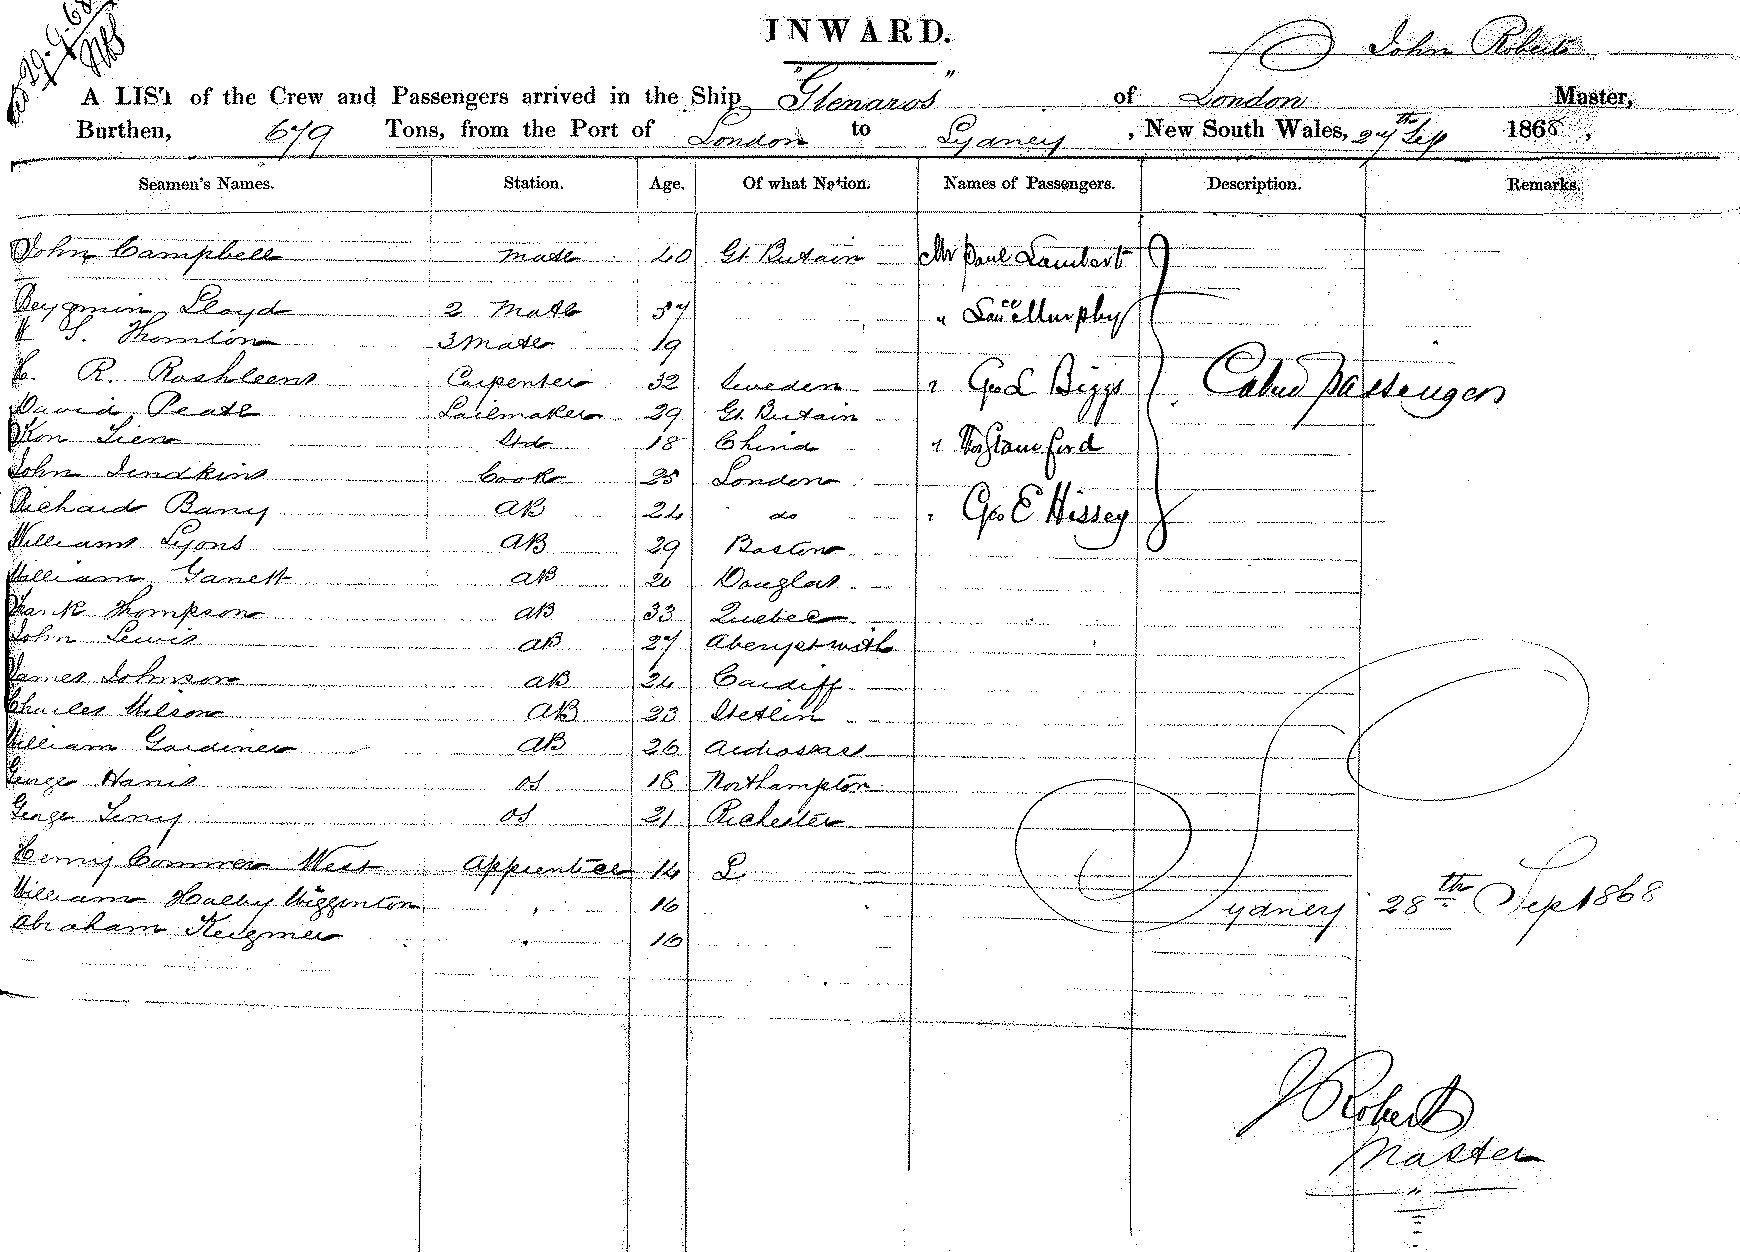 29.9.68
INWARD.
John Roberts
A LIST of the Crew and Passengers arrived in the Ship "Glenaros" of London Master,
Burthen, 679 Tons, from the Port of London to Sydney, New South Wales, 27th Sep 1868,
Seamen's Names. Station. Age. Of what Nation. Names of Passengers. Description. Remarks.
John Campbell mate 40 Gt. Britain Mr Paul Lambert
Benjamin Lloyd 2 Mate 37 " Murphy
S. Thornton 3 Mate 19
R. Rashleens Carpenter 32 Sweden " Geo L Biggs Cabin passengers
David Peate Sailmaker 29 Gt. Britain
Kon Sien Std 18 China " Stanford
John Jendkins Cook 25 London
Richard Barry AB 24 do " Geo E Hissey
Williams Lyons AB 29 Boston
William Garrett AB 20 Douglas
Frank Thompson AB 33 Quebec
John Lewis AB 27 Aberystwith
James Johnson AB 24 Cardiff
Charles Wilson AB 23 Stetlin
William Gardiner AB 26 Ardrossas
George Harris OS 18 Northampton
George Terry OS 21 Richester
Henry Commer West Apprentice 14 L
William Halby Wigginton " 16
Sydney 28th Sep 1868
Abraham " 16
J Roberts
Master